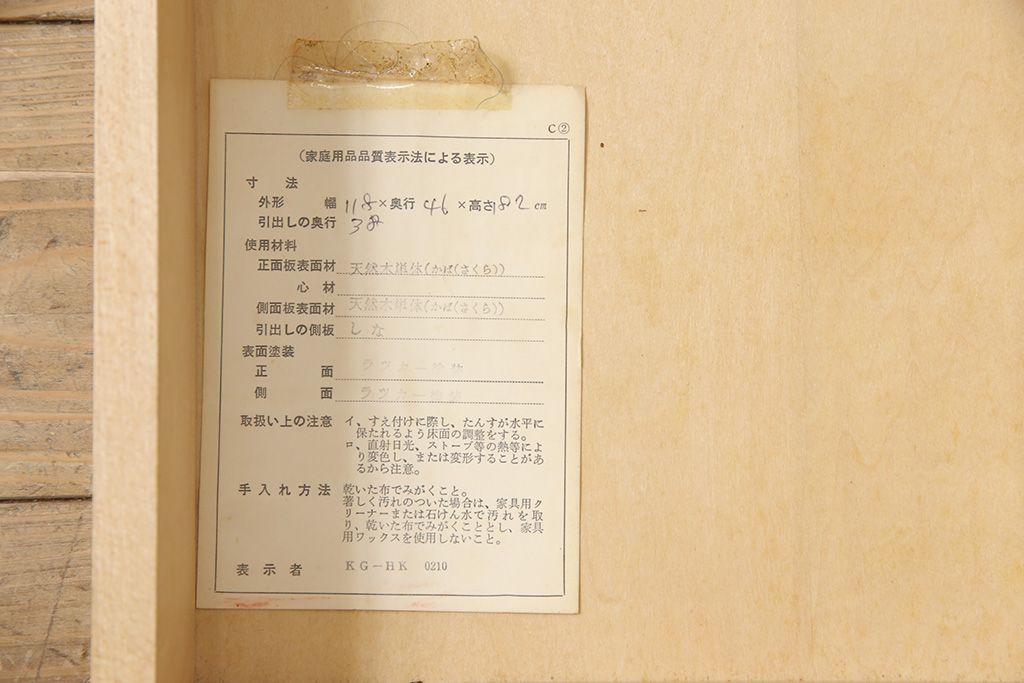 C②
（家庭用品品質表示法による表示）
寸法
外形 幅 118×奥行 46 ×高さ182 cm
引出しの奥行 38
使用材料
正面板表面材 天然木単体(かば(さくら))
心材
側面板表面材 天然木単体(かば(さくら))
引出しの側板 しな
表面塗装
正面 ラッカー塗装
側面 ラッカー塗装
取扱い上の注意 イ、すえ付けに際し、たんすが水平に
保たれるよう床面の調整をする。
ロ、直射日光、ストーブ等の熱等によ
り変色し、または変形することがあ
るから注意。
手入れ方法 乾いた布でみがくこと。
著しく汚れのついた場合は、家具用ク
リーナーまたは石けん水で汚れを取
り、乾いた布でみがくこととし、家具
用ワックスを使用しないこと。
表示者 KG-HK 0210